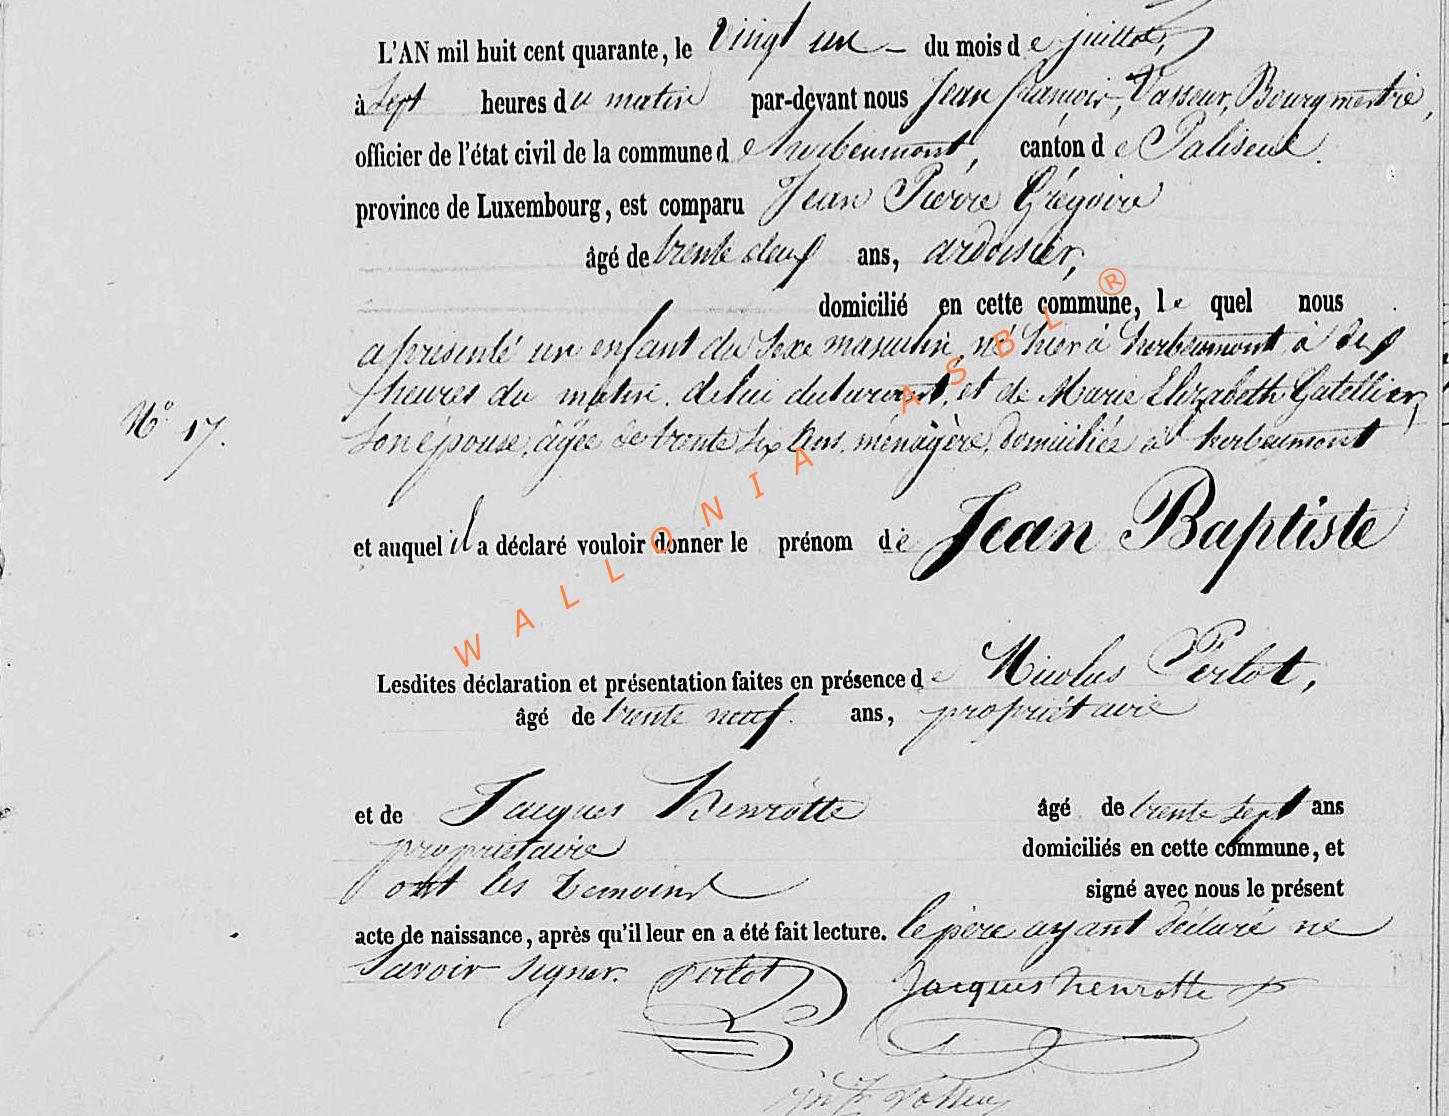 L'AN mil huit cent quarante, le vingt un du mois de juillet,
à sept heures du matin par-devant nous Jean françois, Vasseur, Bourgmestre,
officier de l'état civil de la commune de herbeumont, canton de Paliseul.
province de Luxembourg, est comparu Jean Pierre Grégoire
âgé de trente deux ans, ardoisier,
domicilié en cette commune, le quel nous
a présenté un enfant du sexe masculin, né hier à herbeumont à dix
heures du matin. de lui déclarant, et de Marie Elizabeth Gatellier,
N.° 17. son épouse, agée de trente six ans, ménagère, domiciliée à herbeumont
et auquel il a déclaré vouloir donner le prénom de Jean Baptiste
Lesdites déclaration et présentation faites en présence de Nicolas Perlot,
âgé de trente neuf. ans, propriétaire
et de Jacques henrotte âgé de trente sept ans
propriétaire domiciliés en cette commune, et
ont les temoins signé avec nous le présent
acte de naissance, après qu'il leur en a été fait lecture. le père ayant déclaré ne
savoir signer. Perlot Jacques henrotte
WALLONIA ASBL ®